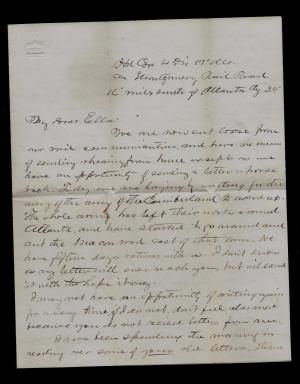 Hd Qrs 4 Div 15" A.C.
on Montgomery Rail Road
16 miles south of Atlanta Aug 29"
My Dear Ella
You are now cut loose from
our rail communication, and have no means
of sending or hearing from home except as we
have an opportunity of sending a letter on horse
back. Today we are laying by waiting for the
army of the Cumberland to come up.
The whole army has left their works around
Atlanta and have started to go around and
cut the Macon road east of that town. We
have fifteen days rations with us. I don't know
as my letter will ever reach you, but will send
it with the hope it may.
I may not have an opportunity of writing again
for a long time if I do not, don't feel alarmed
because you do not receive letters from me.
I have been spending the morning in
reading over some of your old letters.